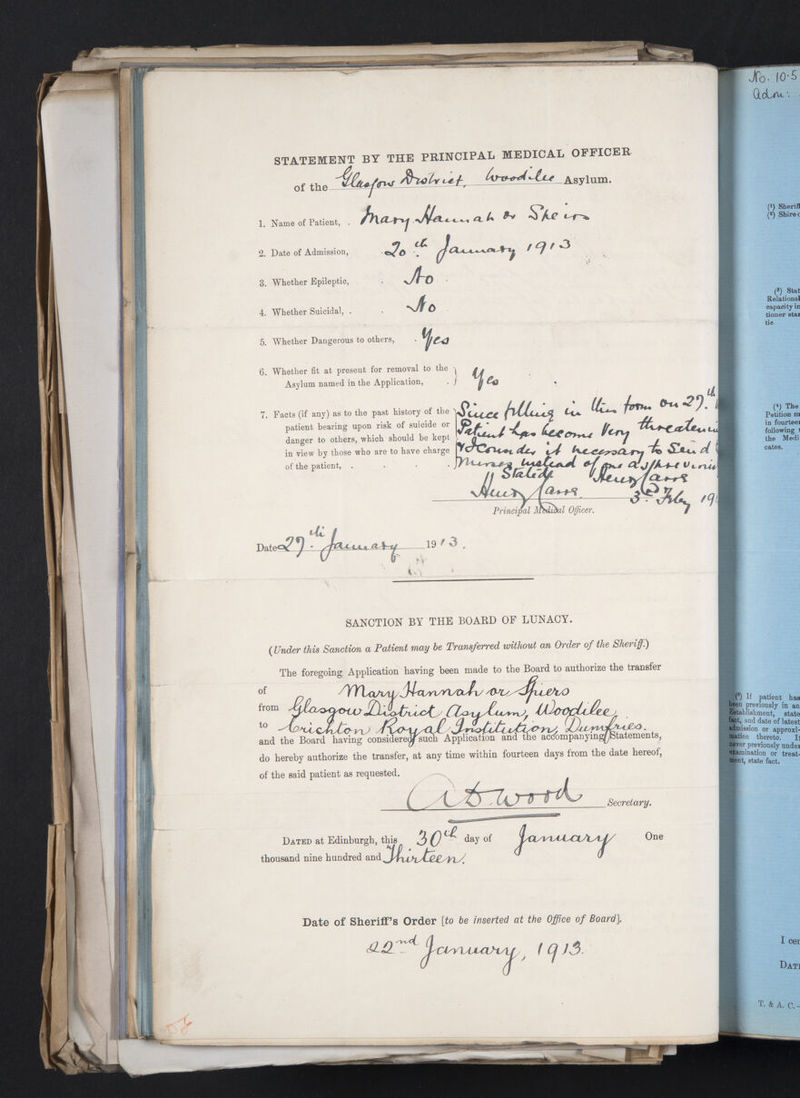 STATEMENT BY THE PRINCIPAL MEDICAL OFFICER
of the Glasgow District, Woodilee Asylum.
1. Name of Patient, . Mary Hannah or Speirs
2. Date of Admission, 20th January 1913
3. Whether Epileptic, . No
4. Whether Suicidal, . . No
5. Whether Dangerous to others, . Yes
6. Whether fit at present for removal to the
Asylum named in the Application, . } Yes
7. Facts (if any) as to the past history of the Since filling in this form on 29th
patient bearing upon risk of suicide or Patient has become very
danger to others, which should be kept I consider it necessary to send
in view by those who are to have charge nurses instead of one as
of the patient, . . . . Stated
Henry Carre
Henry Carre 3rd Feby 19
Principal Medical Officer.
Date 29th January 1913.
SANCTION BY THE BOARD OF LUNACY.
(Under this Sanction a Patient may be Transferred without an Order of the Sheriff.)
The foregoing Application having been made to the Board to authorize the transfer
of Mary Hannah or Spiers
from Glasgow District Asylum, Woodilee,
to Crichton Royal Institution, Dumfries.
and the Board having considered such Application and the accompanying Statements,
do hereby authorize the transfer, at any time within fourteen days from the date hereof,
of the said patient as requested.
A D Wood Secretary.
DATED at Edinburgh, this 30th day of January One
thousand nine hundred and Thirteen.
Date of Sheriff's Order [to be inserted at the Office of Board].
22nd January, 1913.
No. 10·5
Adm:
(1) Sheriff
(2) Shire
(3) Stat
Relations
capacity in
tioner star
tie
(4) The
Petition m
in fourteen
following
the Medi
cates.
(5) If patient has
been previously in an
Establishment, state
fact, and date of latest
admission or approxi-
mation thereto. If
never previously under
examination or treat-
ment, state fact.
I cer
DATE
T. & A. C.-